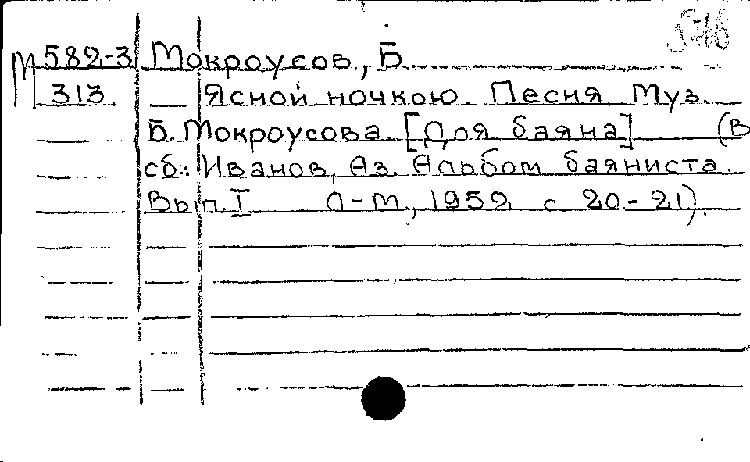 М 582-3 Мокроусов, Б.
313 Ясной ночкою. Песня Муз.
Б. Мокроусова. [Для баяна] (В
сб.: Иванов, Аз. Альбом баяниста.
Вып. I Л-М., 1952 с 20-21).